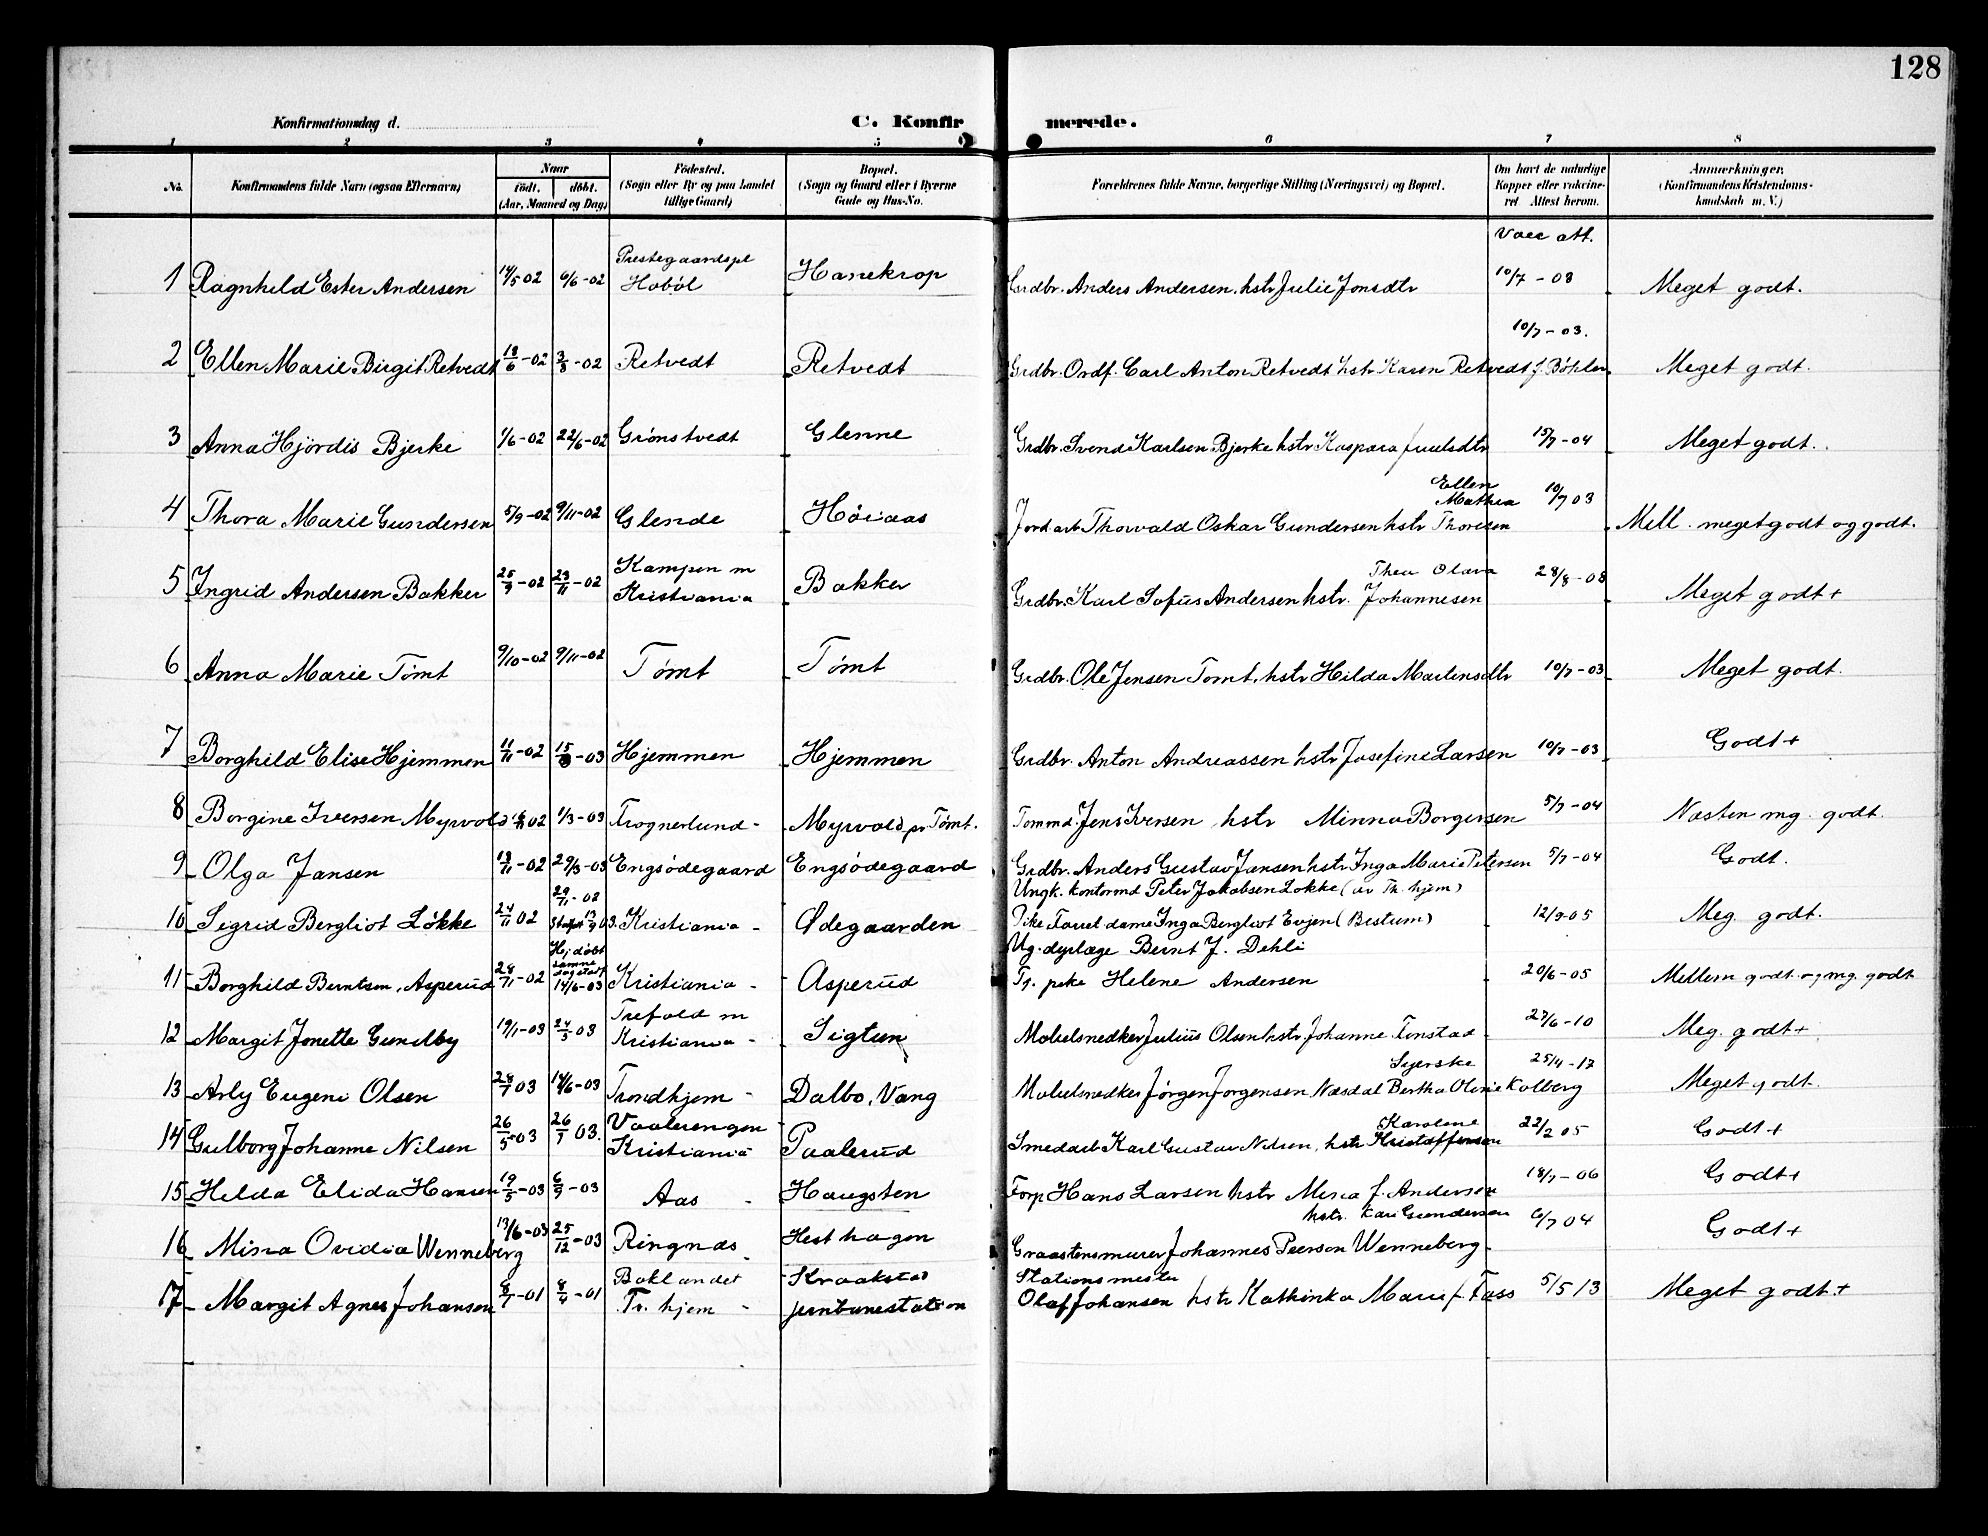 128
Konfirmationsdag d.
C. Konfir merede.
1 2 3 4 5 6 7 8
No. Konfirmandens fulde Navn (ogsaa Efternavn) Naar født. døbt. (Aar, Maaned og Dag) Fødested. (Sogn eller By og paa Landet tillige Gaard) Bopæl. (Sogn og Gaard eller i Byerne Gade og Hus-No. Forældrenes fulde Navne, borgerlige Stilling (Næringsvei) og Bopæl. Om havt de naturlige Kopper eller vakcineret. Attest herom. Anmerkninger. (Konfirmandens Kristendomskundskab m. V.)
Vacc att.
1 Ragnhild Ester Andersen 14/5 02 6/6-02 Prestegaardspl Hobøl Hanekrop Grdbr. Anders Andersen. hstr Julie Jonsdtr 10/7-03 Meget godt.
2 Ellen Marie Birgit Retvedt 18/6-02 3/8-02 Retvedt Retvedt Grdbr. Ordf. Carl Anton Retvedt hstr Karen Retvedt f. Bøhler 10/7-03. Meget godt.
3 Anna Hjördis Bjerke 1/6-02 22/6-02 Grønstvedt Glenne Grdbr. Svend Karlsen Bjerke hstr Kaspara Juulsdtr 15/7-04 Meget godt.
4 Thora Marie Gundersen 5/9-02 9/11-02 Glende Høiaas Jordarb Thorvald Oskar Gundersen hstr Ellen Mathea Thoresen 10/7 03 Mell. meget godt og godt.
5 Ingrid Andersen Bakker 25/9-02 23/11-02 Kampen m Kristiania Bakker Grdbr. Karl Sofus Andersen hstr. Thea Olava Johannesen 28/8-03 Meget godt+
6 Anna Marie Tømt 9/10-02 9/11-02 Tømt Tømt Grdbr. Ole Jensen Tomt. hstr Hilda Martinsdtr 10/7-03 Meget godt.
7 Borghild Elise Hjemmen 11/11-02 15/3-03 Hjemmen Hjemmen Grdbr. Anton Andreassen hstr Josefine Larsen 10/7-03 Godt+
8 Borgine Iversen Myrvold 02 1/3-03 Trognerlund - Myrvold pr Tømt. Tommd. Jens Iversen hstr Minna Borgersen 5/7-04 Næsten mg. godt.
9 Olga Jansen 13/11-02 29/3-03 Engsödegaard Engsödegaard Grdbr. Anders Gustav Jansen hstr Inga Marie Petersen 5/7-04 Godt.
10 Sigrid Bergliot Løkke 24/11 02 29/11-02 03. Kristiania - Ødegaarden Ungk. kontormd Peter Jakobsen Løkke (av Th. hjem)
Pike Inga Bergliot Evjen (Bestum) 12/9-05 Meg. godt.
11 Borghild Berntsen, Asperud 28/11-02 Hj døbt samme dag stadf 14/6-03 Kristiania - Asperud Ug. dyrlæge Bernt J. Dehli
Tj. pike Helene Andersen 20/6-05 Mellem godt og mg. godt
12 Margit Jonette Gundby 19/1-03 24/5 03 Trefold m Kristiania - Sigtun Møbelsnedker Julius Olsen hstr Johanne Finstad 23/6-10 Meg. godt+
13 Arly Eugeni Olsen 28/1 03 14/6-03 Trondhjem - Dalbo, Vang Møbelsnedker Jørgen Jorgensen Næsdal Syerske Bertha Oline Kolberg 25/4-17 Meget godt.
14 Gulborg Johanne Nilsen 26/5-03 26/7 03. Vaalerengen Kristiania Paalerud Smedarb Karl Gustav Nilsen, hstr Karoline Kristoffersen 22/2 05 Godt+
15 Hilda Elida Hansen 19/5-03 6/9-03 Aas - Haugsten Forp Hans Larsen hstr Mina f. Andersen 18/7-06 Godt+
16 Mina Ovidia Wenneberg 13/6-03 25/12-03 Ringnes Hesthagen Graastensmurer Johannes Peerson Wenneberg. hstr. Kari Gundersen 6/7 04 Godt+
17 Margit Agnes Johansen 6/1-01 8/4-01 Baklandet Tr. hjem - Kraakstad jernbanestation Stationsmester
Olaf Johansen hstr Kathinka Marie f. Fass 5/5 13 Meget godt+